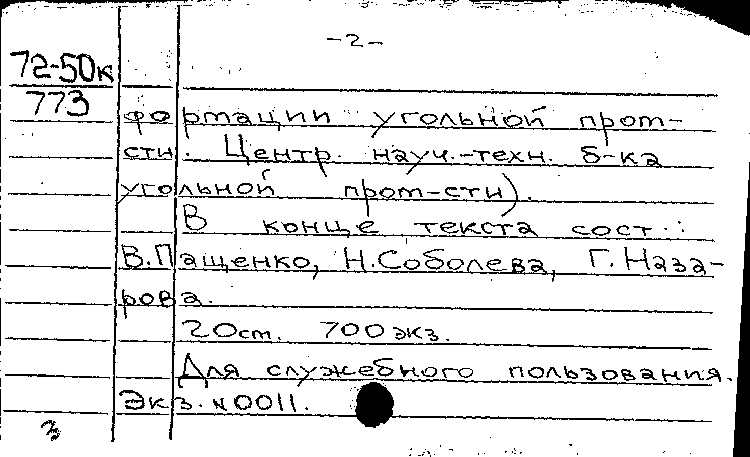 -2-
72-50к
773
формации угольной пром-
сти. Центр. науч.-техн. б-ка
угольной пром-сти).
В конце текста сост.:
В.Пащенко, Н.Соболева, Г.Наза-
рова.
20см. 700экз.
Для служебного пользования.
Экз. №0011.
3